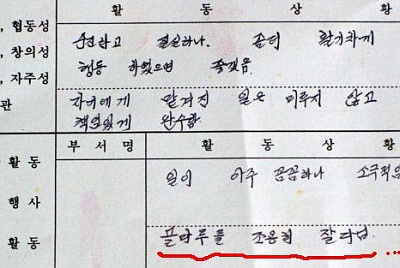 , 협동성 활 동 상 황
, 창의성 순진하고 절실하나. 좀더 활기차게
, 자주성 행동 하였으면 좋겠음
관 자기에게 맡겨진 일은 미루지 않고
책임있게 완수함
활동 부서명 활 동 상 황
일이 아주 꼼꼼하나 소극적임
행사
활동 플라루를 조용히 잘 다님